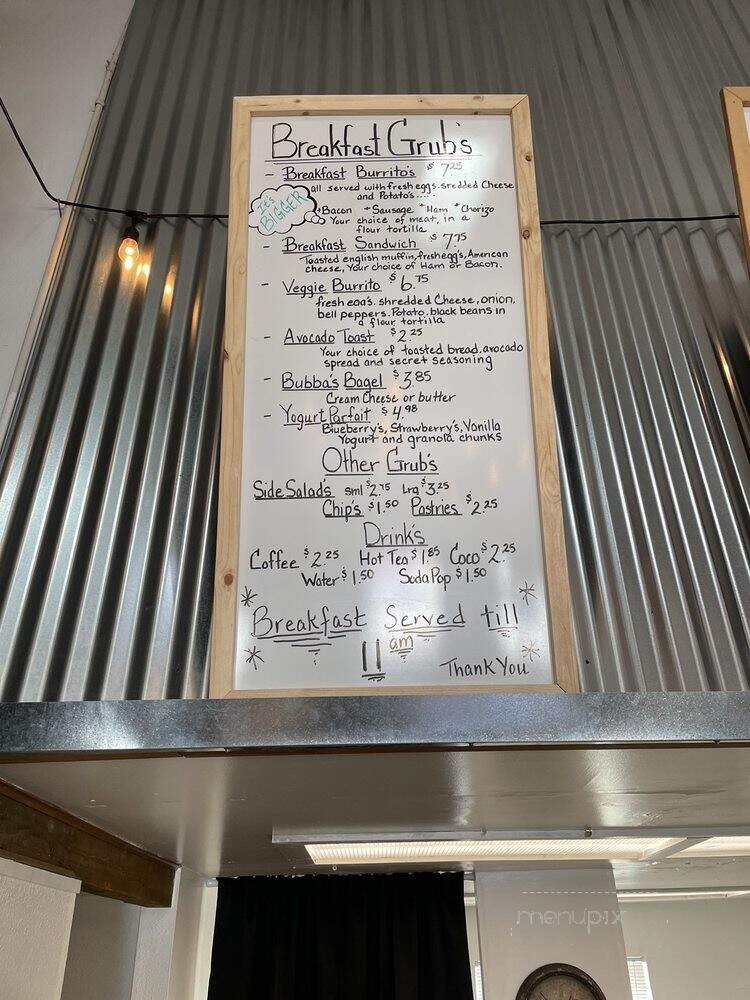 Breakfast Grub's
- Breakfast Burrito's $7.25
all served with fresh eggs. sredded Cheese
and Potato's....
IT'S BIGGER
*Bacon *Sausage *Ham *Chorizo
Your choice of meat, in a
flour tortilla
- Breakfast Sandwich $7.75
Toasted english muffin, fresh egg's, American
cheese, Your choice of Ham or Bacon.
- Veggie Burrito $6.75
fresh egg's. shredded Cheese, onion,
bell peppers. Potato. black beans in
a flour tortilla
- Avocado Toast $2.25
Your choice of toasted bread. avocado
spread and secret seasoning
- Bubba's Bagel $3.85
Cream Cheese or butter
- Yogurt Parfait $4.98
Blueberry's, Strawberry's, Vanilla
Yogurt and granola chunks
Other Grub's
Side Salad's sml $2.75 Lrg $3.25
Chip's $1.50 Pastries $2.25
Drink's
Coffee $2.25 Hot Tea $1.85 Coco $2.25
Water $1.50 Soda Pop $1.50
Breakfast Served till
11 am
Thank You
menupix